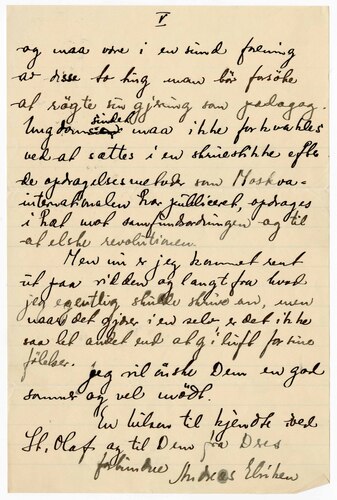 V
og maa være i en sund forening
av disse to ting man bör forsöke
at rögte sin gjerning som pædagog.
Ungdomssindet maa ikke forkvakles
ved at sættes i en skruestikke efter
de opdragelsesmetoder som Moskva-
internationalen har publiceret, opdrages
i hat mot samfundsordningen og til
at elske revolutionen.
Men nu er jeg kommet rent
ut paa vidden og langt fra hvad
jeg egentlig skulde skrive om, men
naar det gjærer i en selv er det ikke
saa let andet end at gi luft for sine
følelser.
Jeg vil önske Dem en god
sommer og vel mödt.
En hilsen til kjendte ved
St. Olaf og til Dem fra Deres
forbundne Andreas